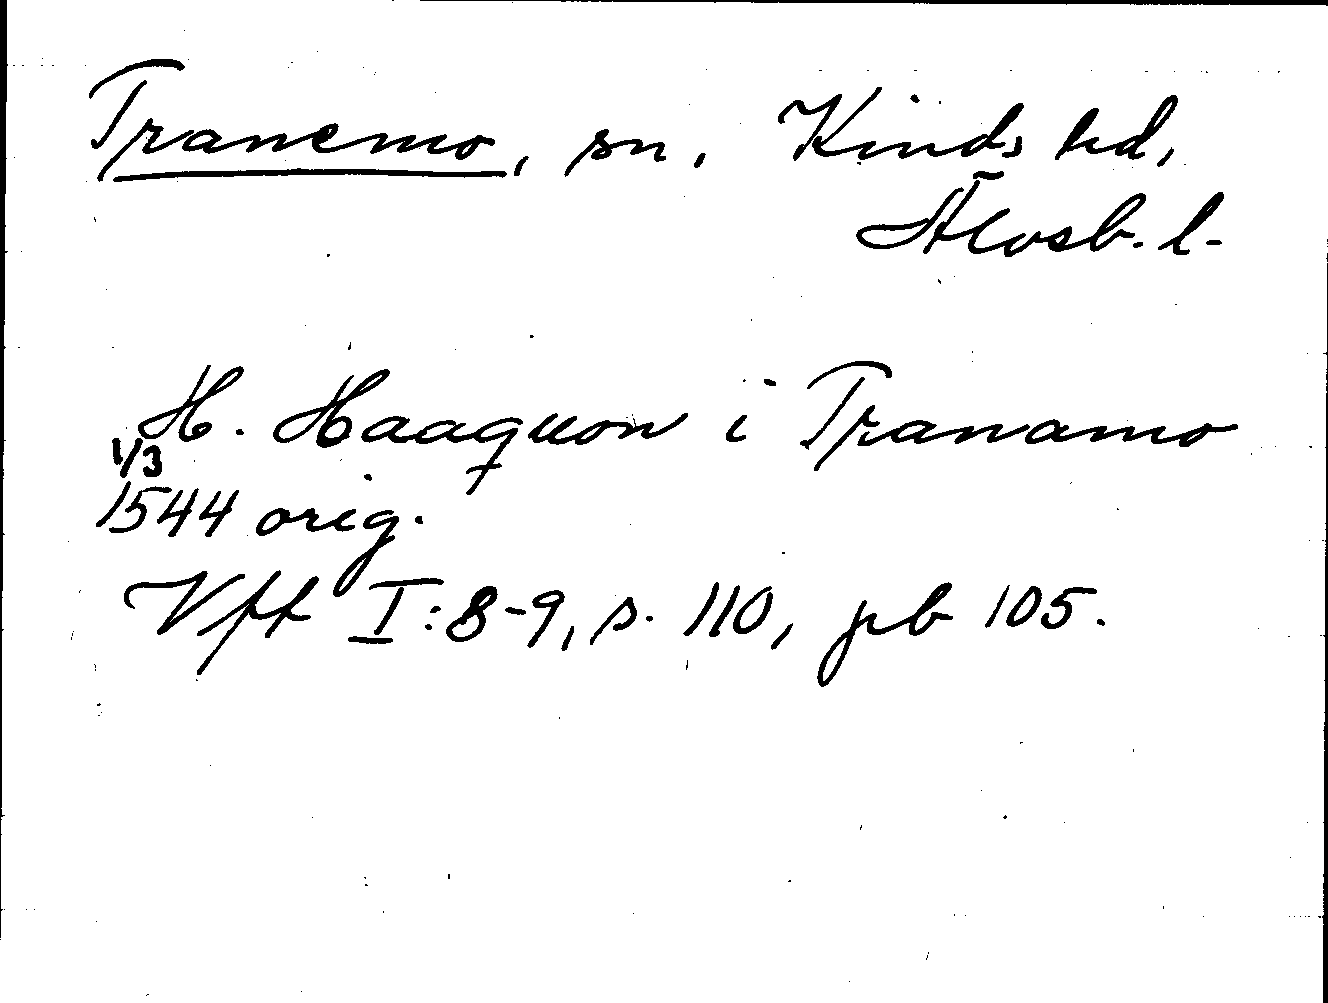 Tranemo, sn, Kinds hd,
Älvsb. l.
H. Haaquon i Tranamo
1/3
1544 orig.
Vft I:8-9, s. 110, pb 105.